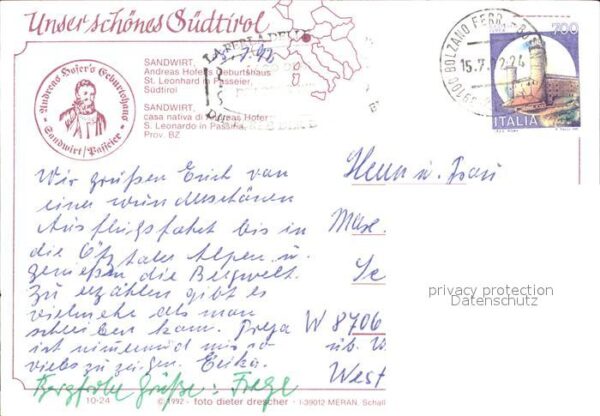 Unser schönes Südtirol
SANDWIRT,
Andreas Hofers Geburtshaus
St. Leonhard in Passeier,
Südtirol
SANDWIRT,
casa nativa di Andreas Hofer
St. Leonardo in Passiria,
Prov. BZ
Andreas Hofer's Geburtshaus
Sandwirt/Passeier
BOLZANO FERR.
15.7.
700
ITALIA
Wir grüßen Euch von
einer wunderschönen
Ausflugsfahrt bis in
die Ötztaler Alpen u.
genießen die Bergwelt.
Zu erzählen gibt es
vielmehr als man
schreiben kann.
ist
viels zu zeigen. Erika.
Bergfrohe Grüße:
Herrn u. Frau
Max
W 8706
üb. W
West
privacy protection
Datenschutz
10-24 © 1992 - foto dieter drescher - I-39012 MERAN, Schall